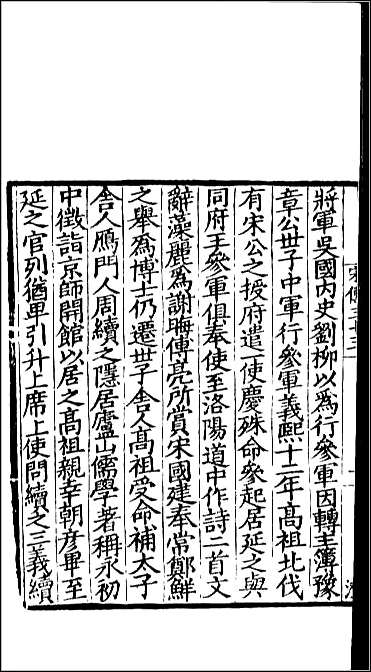 宋傳三十三
將軍吳國內史劉柳以爲行參軍因轉主簿豫
章公世子中軍行參軍義熙十二年高祖北伐
有宋公之授府遣一使慶殊命參起居延之與
同府王參軍俱奉使至洛陽道中作詩二首文
辭藻麗爲謝晦傅亮所賞宋國建奉常鄭鮮
之舉爲博士仍遷世子舍人高祖受命補太子
舍人鴈門人周續之隱居廬山儒學著稱永初
中徵詣京師開館以居之高祖親幸朝彥畢至
延之官列猶卑引升上席上使問續之三義續